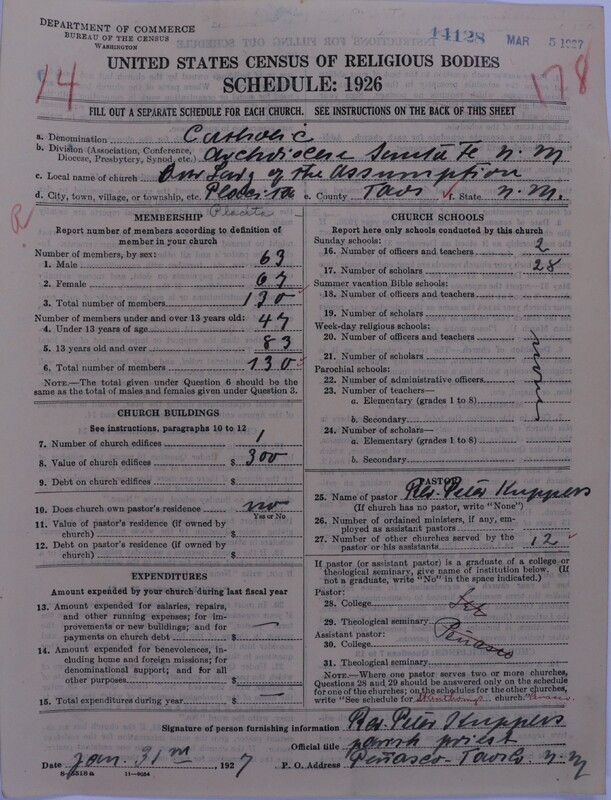 DEPARTMENT OF COMMERCE
BUREAU OF THE CENSUS
WASHINGTON
14128 MAR 5 1927
UNITED STATES CENSUS OF RELIGIOUS BODIES
SCHEDULE: 1926
14
178
FILL OUT A SEPARATE SCHEDULE FOR EACH CHURCH. SEE INSTRUCTIONS ON THE BACK OF THIS SHEET
a. Denomination Catholic
b. Division (Association, Conference, Diocese, Presbytery, Synod, etc.) Archdiocese Santa Fe N. M
c. Local name of church Our Lady of the Assumption
d. City, town, village, or township, etc. Placita e. County Taos f. State N. M.
Placita
R
MEMBERSHIP
Report number of members according to definition of
member in your church
Number of members, by sex:
1. Male 63
2. Female 67
3. Total number of members 130
Number of members under and over 13 years old:
4. Under 13 years of age 47
5. 13 years old and over 83
6. Total number of members 130
NOTE.—The total given under Question 6 should be
same as the total of males and females given under Question 3.
CHURCH BUILDINGS
See instructions, paragraphs 10 to 12
7. Number of church edifices 1
8. Value of church edifices $ 300
9. Debt on church edifices $
10. Does church own pastor's residence no
Yes or No
11. Value of pastor's residence (if owned by
church) $
12. Debt on pastor's residence (if owned by
church) $
EXPENDITURES
Amount expended by your church during last fiscal year
13. Amount expended for salaries, repairs,
and other running expenses; for im-
provements or new buildings; and for
payments on church debt $ —
14. Amount expended for benevolences,
including home and foreign missions; for
denominational support; and for all
other purposes $ —
15. Total expenditures during year $ —
CHURCH SCHOOLS
Report here only schools conducted by this church
Sunday schools:
16. Number of officers and teachers 2
17. Number of scholars 28
Summer vacation Bible schools:
18. Number of officers and teachers
19. Number of scholars
Week-day religious schools:
20. Number of officers and teachers
21. Number of scholars
Parochial schools:
22. Number of administrative officers
23. Number of teachers—
a. Elementary (grades 1 to 8)
b. Secondary
24. Number of scholars—
a. Elementary (grades 1 to 8)
b. Secondary
PASTOR
25. Name of pastor Rev. Peter Kuppers
(If church has no pastor, write "None")
26. Number of ordained ministers, if any, em-
ployed as assistant pastors
27. Number of other churches served by the
pastor or his assistants 12
If pastor (or assistant pastor) is a graduate of a college or
theological seminary, give name of institution below. (If
not a graduate, write "No" in the space indicated.)
Pastor:
28. College See
29. Theological seminary Peñasco
Assistant pastor:
30. College
31. Theological seminary
NOTE.—Where one pastor serves two or more churches,
Questions 28 and 29 should be answered only on the schedule
for one of the churches; on the schedules for the other churches,
write "See schedule for church."
Signature of person furnishing information Rev. Peter Kuppers
Official title parish priest
Date Jan. 31 1927 P. O. Address Peñasco - Taos Co. N. M
8—5518 a 11—9054